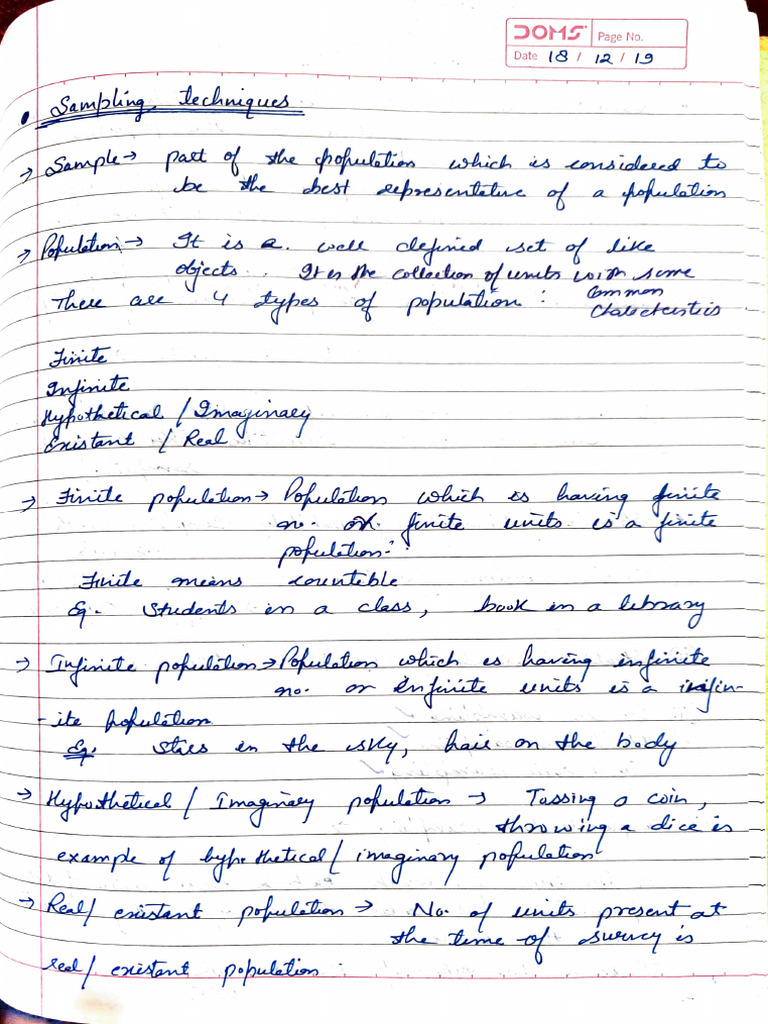 DOMS Page No.
Date 18 / 12 / 19
• Sampling techniques
→ Sample → part of the population which is considered to
be the best representative of a population
→ Population → It is a well defined set of like
objects. It is the collection of units with some
There are 4 types of population : common
characteristics
Finite
Infinite
Hypothetical / Imaginary
Existant / Real
→ Finite population → Population which is having finite
no. or finite units is a finite
population.
Finite means countible
Eg. Students in a class, book in a library
→ Infinite population → Population which is having infinite
no. or infinite units is a infin-
-ite population
Eg. stars in the sky, hair on the body
→ Hypothetical / Imaginary population → Tossing a coin,
throwing a dice is
example of hypothetical / imaginary population
→ Real / existant population → No. of units present at
the time of survey is
real / existant population.